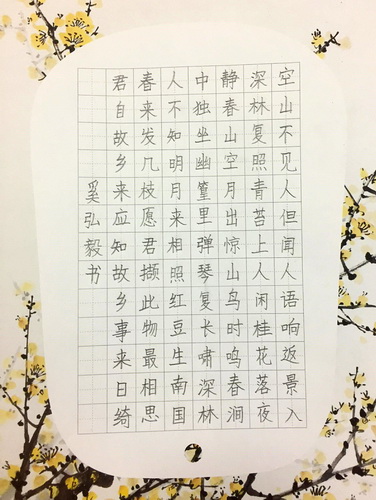 空山不见人但闻人语响返景入
深林复照青苔上人闲桂花落夜
静春山空月出惊山鸟时鸣春涧
中独坐幽篁里弹琴复长啸深林
人不知明月来相照红豆生南国
春来发几枝愿君撷此物最相思
君自故乡来应知故乡事来日绮
奚弘毅书